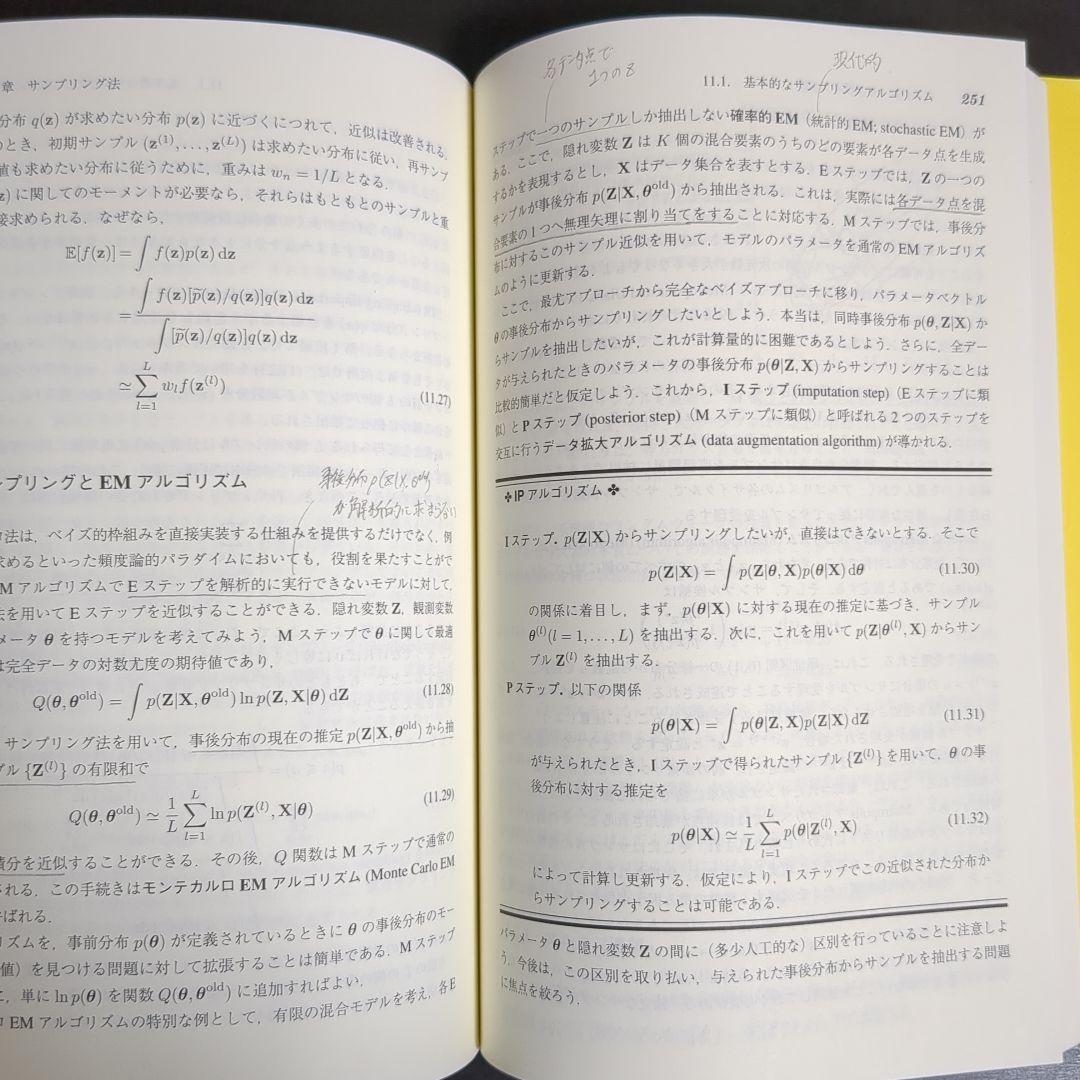 章 サンプリング法
分布 q(z) が求めたい分布 p(z) に近づくにつれて，近似は改善される．
のとき，初期サンプル (z^(1), . . . , z^(L)) は求めたい分布に従い，再サンプ
値も求めたい分布に従うために，重みは w_n = 1/L となる．
z) に関してのモーメントが必要なら，それらはもともとのサンプルと重
接求められる．なぜなら，
𝔼[f(z)] = ∫ f(z)p(z) dz
= ∫ f(z)[p̃(z)/q(z)]q(z) dz / ∫ [p̃(z)/q(z)]q(z) dz
≃ ∑_{l=1}^{L} w_l f(z^(l)) (11.27)
ンプリングと EM アルゴリズム
事後分布 p(Z|X,θ^old)
が解析的に求まらない
ロ法は，ベイズ的枠組みを直接実装する仕組みを提供するだけでなく，例
求めるといった頻度論的パラダイムにおいても，役割を果たすことがで
EM アルゴリズムで E ステップを解析的に実行できないモデルに対して，
法を用いて E ステップを近似することができる．隠れ変数 Z，観測変数
メータ θ を持つモデルを考えてみよう．M ステップで θ に関して最適
は完全データの対数尤度の期待値であり，
Q(θ, θ^old) = ∫ p(Z|X, θ^old) ln p(Z, X|θ) dZ (11.28)
サンプリング法を用いて，事後分布の現在の推定 p(Z|X, θ^old) から抽
プル {Z^(l)} の有限和で
Q(θ, θ^old) ≃ 1/L ∑_{l=1}^{L} ln p(Z^(l), X|θ) (11.29)
積分を近似することができる．その後，Q 関数は M ステップで通常の
される．この手続きはモンテカルロ EM アルゴリズム (Monte Carlo EM
ばれる．
リズムを，事前分布 p(θ) が定義されているときに θ の事後分布のモー
値）を見つける問題に対して拡張することは簡単である．M ステップ
に，単に ln p(θ) を関数 Q(θ, θ^old) に追加すればよい．
ロ EM アルゴリズムの特別な例として，有限の混合モデルを考え，各 E
各データ点で
1つのz
現代的
11.1. 基本的なサンプリングアルゴリズム 251
ステップで一つのサンプルしか抽出しない確率的 EM（統計的 EM; stochastic EM）が
ある．ここで，隠れ変数 Z は K 個の混合要素のうちのどの要素が各データ点を生成
するかを表現するとし，X はデータ集合を表すとする．E ステップでは，Z の一つの
サンプルが事後分布 p(Z|X, θ^old) から抽出される．これは，実際には各データ点を混
合要素の 1 つへ無理矢理に割り当てをすることに対応する．M ステップでは，事後分
布に対するこのサンプル近似を用いて，モデルのパラメータを通常の EM アルゴリズ
ムのように更新する．
ここで，最尤アプローチから完全なベイズアプローチに移り，パラメータベクトル
θ の事後分布からサンプリングしたいとしよう．本当は，同時事後分布 p(θ, Z|X) か
らサンプルを抽出したいが，これが計算量的に困難であるとしよう．さらに，全デー
タが与えられたときのパラメータの事後分布 p(θ|Z, X) からサンプリングすることは
比較的簡単だと仮定しよう．これから，I ステップ (imputation step)（E ステップに類
似）と P ステップ (posterior step)（M ステップに類似）と呼ばれる 2 つのステップを
交互に行うデータ拡大アルゴリズム (data augmentation algorithm) が導かれる．
✤ IP アルゴリズム ✤
I ステップ．p(Z|X) からサンプリングしたいが，直接はできないとする．そこで
p(Z|X) = ∫ p(Z|θ, X)p(θ|X) dθ (11.30)
の関係に着目し，まず，p(θ|X) に対する現在の推定に基づき，サンプル
θ^(l)(l = 1, . . . , L) を抽出する．次に，これを用いて p(Z|θ^(l), X) からサン
プル Z^(l) を抽出する．
P ステップ．以下の関係
p(θ|X) = ∫ p(θ|Z, X)p(Z|X) dZ (11.31)
が与えられたとき，I ステップで得られたサンプル {Z^(l)} を用いて，θ の事
後分布に対する推定を
p(θ|X) ≃ 1/L ∑_{l=1}^{L} p(θ|Z^(l), X) (11.32)
によって計算し更新する．仮定により，I ステップでこの近似された分布か
らサンプリングすることは可能である．
パラメータ θ と隠れ変数 Z の間に（多少人工的な）区別を行っていることに注意しよ
う．今後は，この区別を取り払い，与えられた事後分布からサンプルを抽出する問題
に焦点を絞ろう．